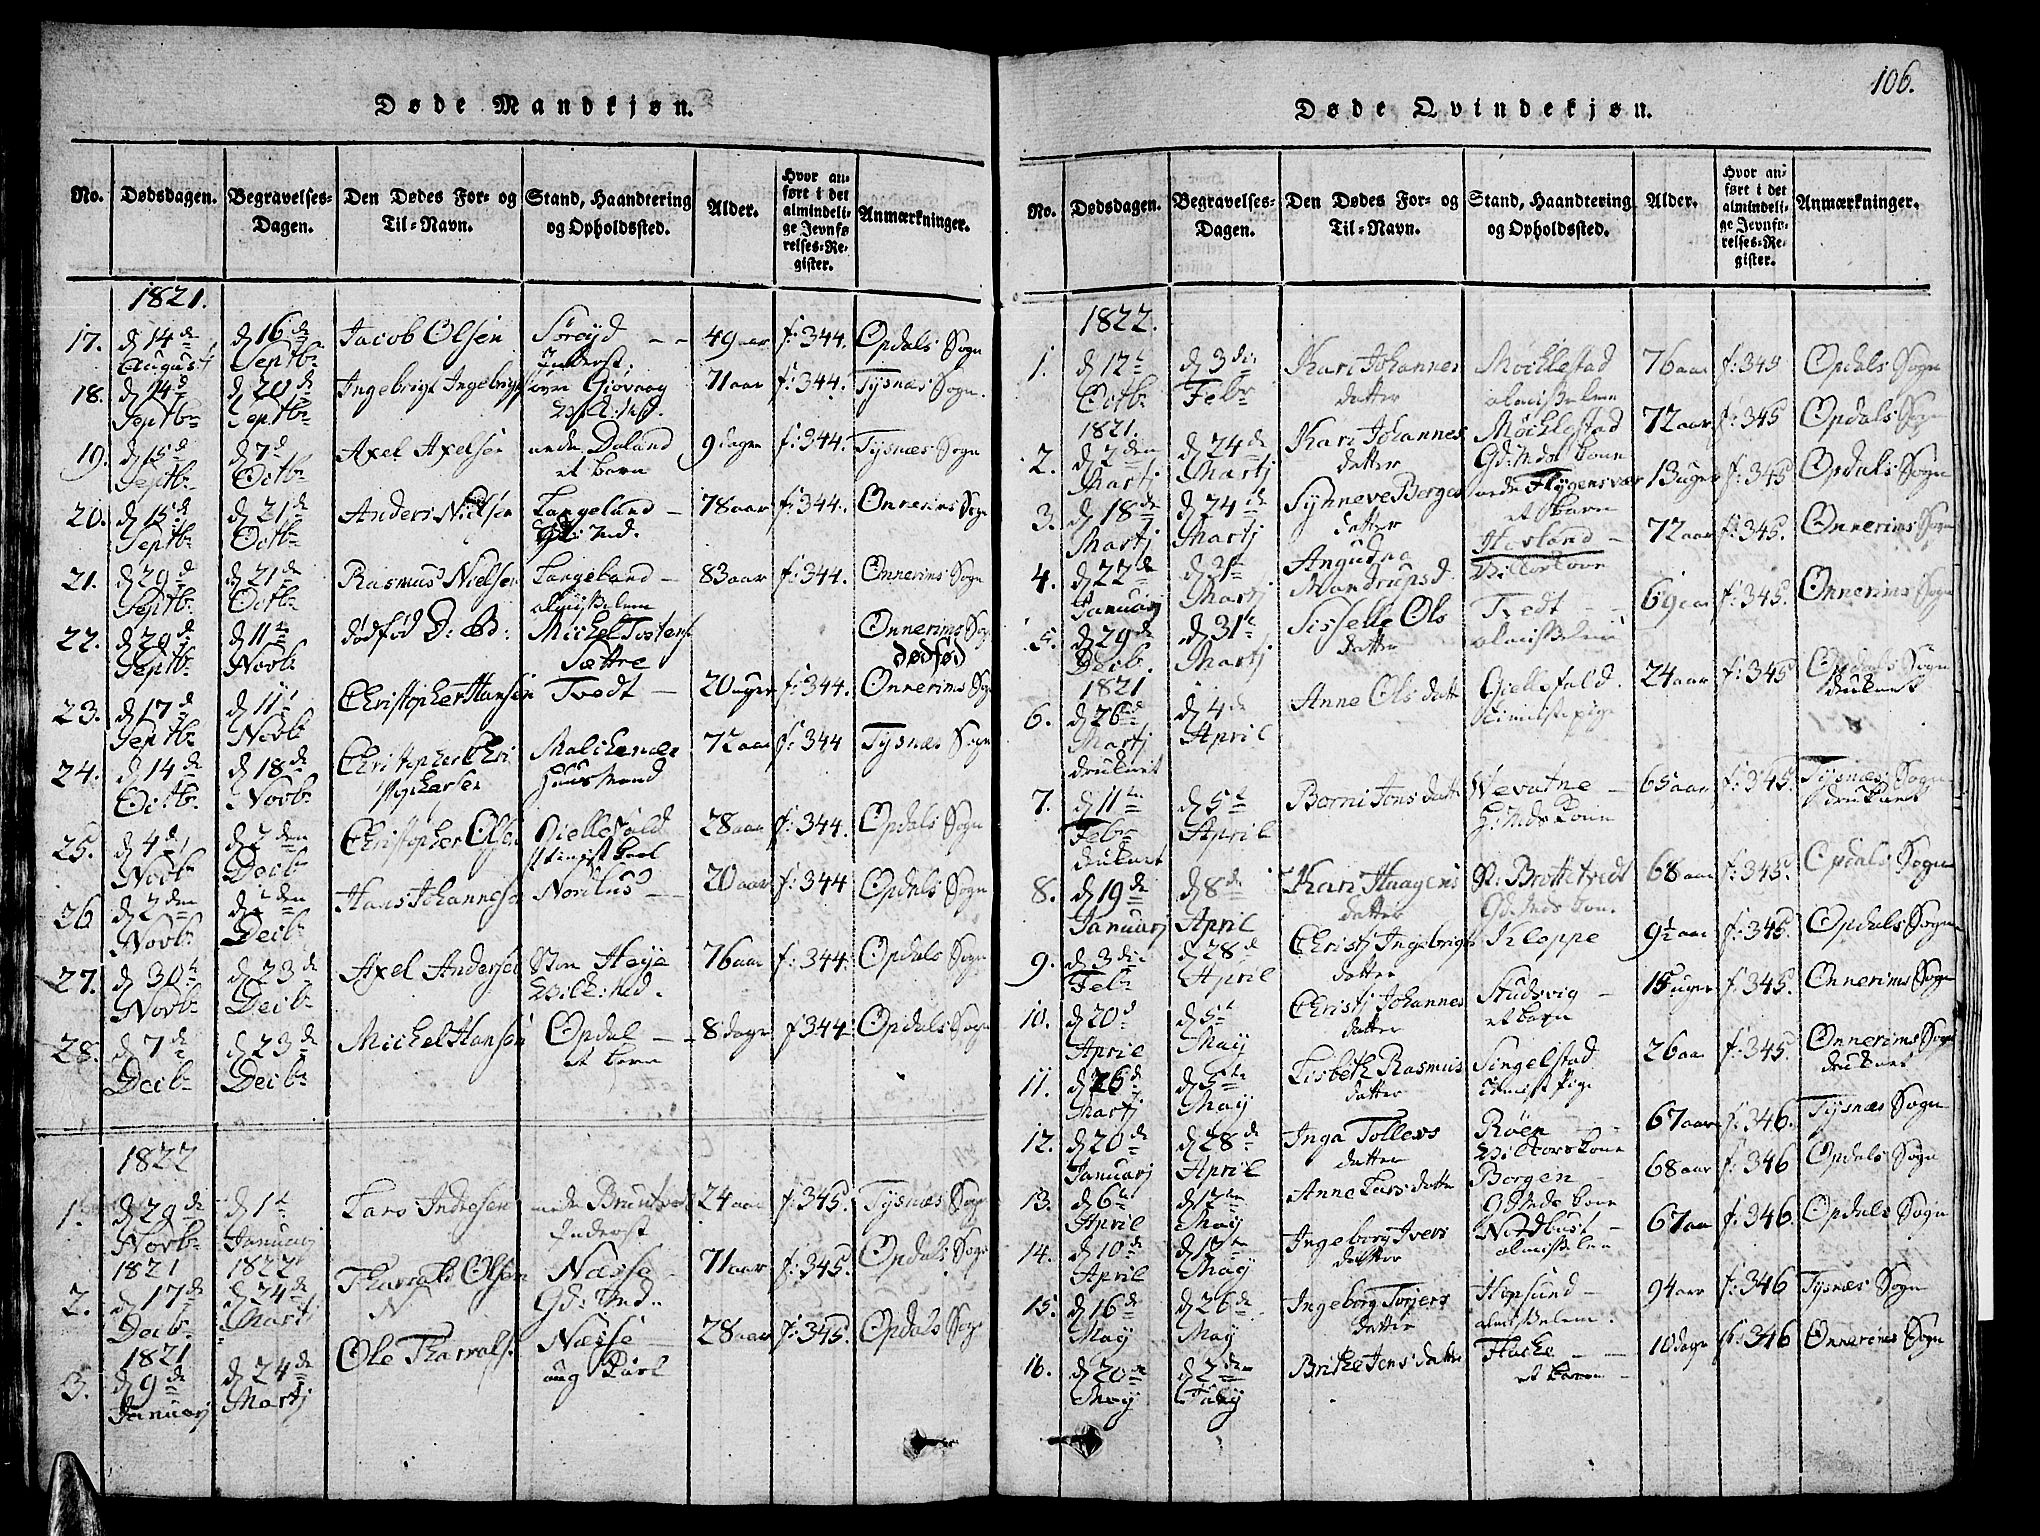 106.
Døde Mandkjøn.
No. Dødsdagen. Begravelses-Dagen. Den Dødes For- og Til-Navn. Stand, Haandtering og Opholdssted. Alder. Hvor anført i det almindelige Jevnførelses-Register. Anmærkninger.
1821.
17. d 14de August d 16de Septbr Jacob Olsen Inderst. 49 aar f: 344. Opdals Sogn
18. d 14d Septbr d 20de Septbr Ingebrigt 71 aar f: 344. Tysnæs Sogn.
19. d 15d Septbr d 7d Octbr Axel Axelsen nedre Daland et barn 9 dage f: 344. Tysnæs Sogn
20. d 15d Septbr d 21de Octbr Anders Nielsen Langeland 78 aar f: 344. Onnerims Sogn
21. d 29de Septbr d 21de Octbr Rasmus Nielsen Langeland 83 aar f: 344. Onnerims Sogn
22. d 29de Septbr d 11te Novbr dødfød D: B: Michel Tostens Sættre Onnerims Sogn dødfød
23. d 17de Septbr d 11te Novbr Christopher Hansen Tvedt 20 uger f: 344. Onnerims Sogn
24. d 14de Octbr d 18de Novbr Christopher Christophersen Huusmand 72 aar f: 344 Tysnæs Sogn
25. d 4de Novbr d 2den Decbr Christopher Olsen 28 aar f: 344. Opdals Sogn
26 d 2den Novbr d 2den Decbr Hans Johannesen Nordhus 20 aar f: 344 Opdals Sogn
27. d 30te Novbr d 23de Decbr Axel Andersen Stor Høye 76 aar f: 344. Opdals Sogn
28. d 7de Decbr d 23de Decbr Michel Hansen Opdal et barn 8 dage f: 344. Opdals Sogn
1822
1. d 29de Novbr 1821 d 1te Januarj 1822 Lars Andresen Inderst 24 aar f: 345. Tysnæs Sogn
2. d 17de Decbr 1821 d 24de Martj Tharald Olsen Næsse 71 aar f: 345. Opdals Sogn
3. d 9de Januarj d 24de Martj Ole Tharalds Næsse ung Karl 28 aar f: 345. Opdals Sogn
Døde Qvindekjøn.
No. Dødsdagen. Begravelses-Dagen. Den Dødes For- og Til-Navn. Stand, Haandtering og Opholdssted. Alder. Hvor anført i det almindelige Jevnførelses-Register. Anmærkninger.
1822.
1. d 12te Octbr 1821. d 3die Febr Kari Johannes datter Møchlestad 76 aar f: 345 Opdals Sogn
2. d 2den Martj d 24de Martj Kari Johannes datter Møchlestad 72 aar f: 345 Opdals Sogn
3. d 18de Martj d 24de Martj Synneve Berges datter et barn 13 uger f: 345 Opdals Sogn
4. d 22de Januarj d 31te Martj Mandrups d. 72 aar f: 345. Onnerims Sogn
5. d 29de Decb. 1821 d 31te Martj Sisselle Ols datter Tvedt 69 aar f: 345. Onnerims Sogn
6. d 26de Martj druknet d 4de April Anne Ols datter 24 aar f: 345 Opdals Sogn druknet
7. d 11te Febr druknet d 5te April Borni Jons datter Wevatne 65 aar f: 345. Tysnæs Sogn druknet
8. d 19de Januarj d 8de April Kari Haagens datter 68 aar f: 345. Opdals Sogn
9. d 3die Febr d 28de April Christj Ingebrigts datter Kleppe 9½ aar f: 345. Opdals Sogn
10. d 20d April d 5te May Christj Johannes datter Studsvig et barn 15 uger f: 345. Onnerims Sogn
11. d 26de Martj d 5te May Lisbeth Rasmus datter Singelstad 26 aar f: 345. Onnerims Sogn druknet
12. d 20de Januarj d 28de April Inga Tollevs datter Røen 67 aar f: 346. Tysnæs Sogn
13. d 6te April d 12te May Anne Lars datter Borgen 68 aar f: 346 Opdals Sogn
14. d 10de April May Ingeborg Ivers datter 67 aar f: 346. Opdals Sogn
15. d 16de May d 26de May Ingeborg Torjers datter Hopsund 94 aar f: 346 Tysnæs Sogn
16. d 20de May d 2den Brithe Jens datter et barn 10 dage f: 346 Onnerims Sogn